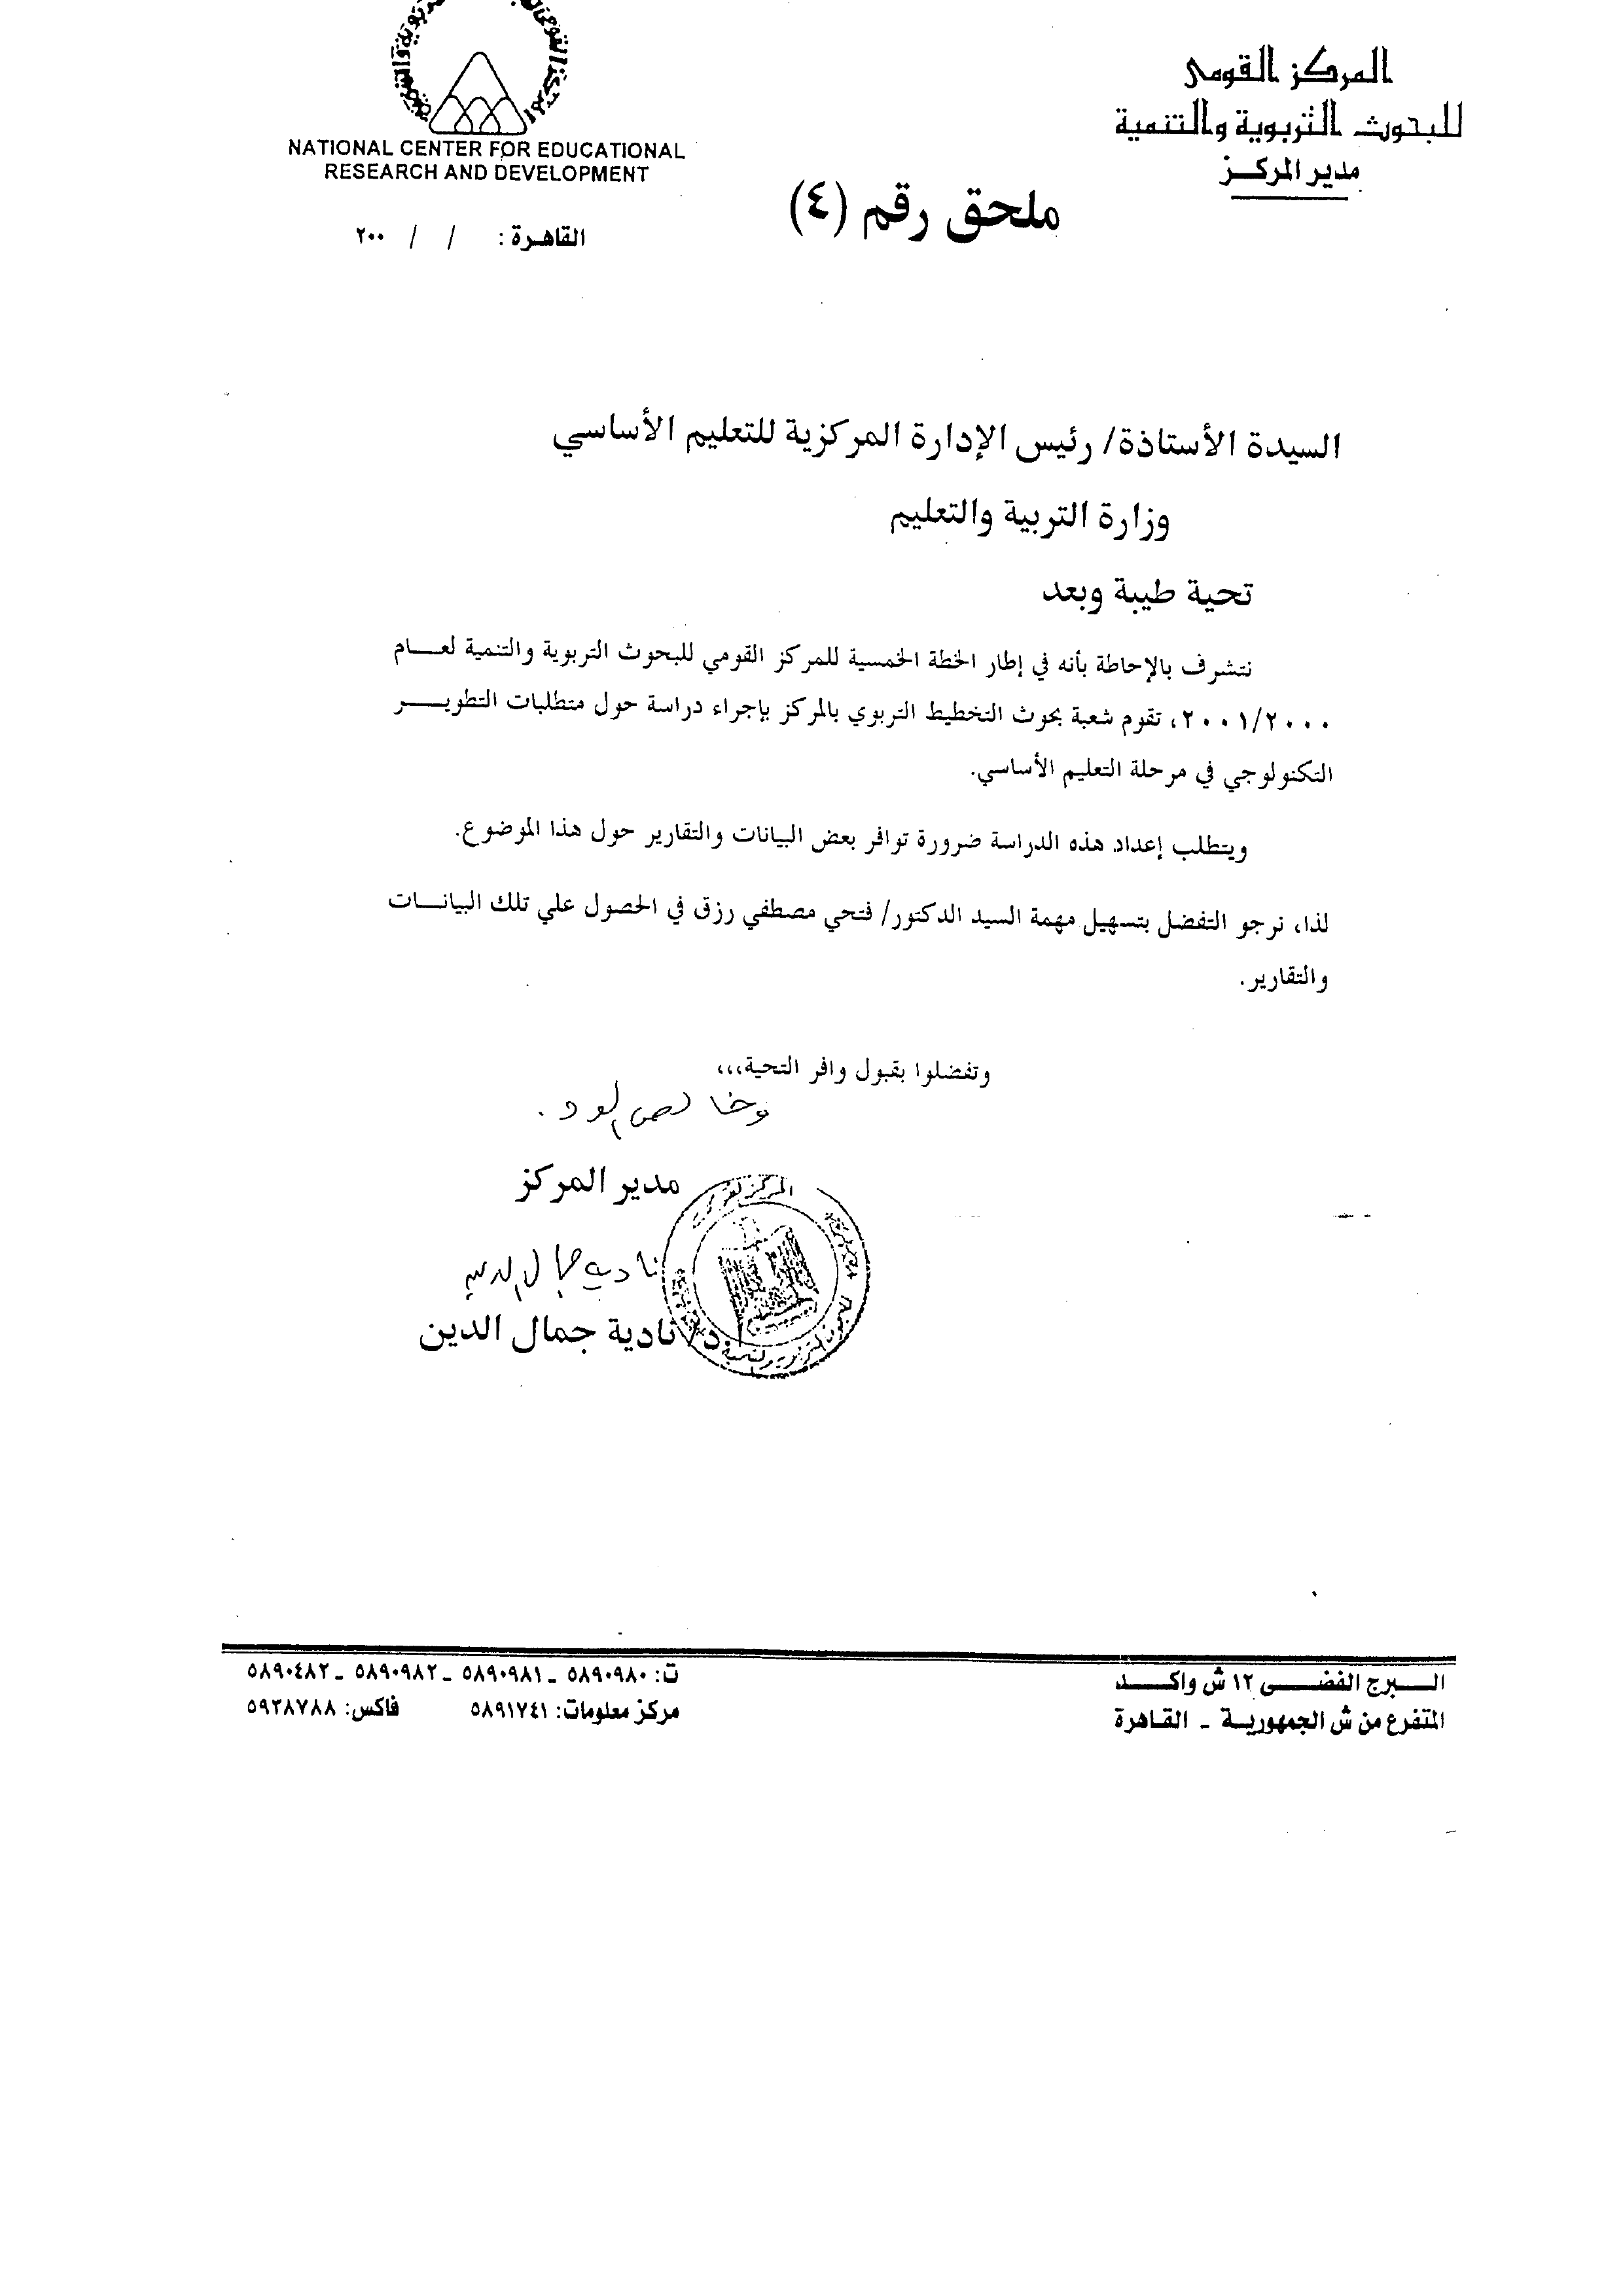 المركز القومى
للبحوث التربوية والتنمية
مدير المركز
NATIONAL CENTER FOR EDUCATIONAL
RESEARCH AND DEVELOPMENT
القاهرة : / / ٢٠٠
ملحق رقم (٤)
السيدة الأستاذة/ رئيس الإدارة المركزية للتعليم الأساسي
وزارة التربية والتعليم
تحية طيبة وبعد
نتشرف بالإحاطة بأنه في إطار الخطة الخمسية للمركز القومي للبحوث التربوية والتنمية لعام
٢٠٠١/٢٠٠٠، تقوم شعبة بحوث التخطيط التربوي بالمركز بإجراء دراسة حول متطلبات التطوير
التكنولوجي في مرحلة التعليم الأساسي.
ويتطلب إعداد هذه الدراسة ضرورة توافر بعض البيانات والتقارير حول هذا الموضوع.
لذا، نرجو التفضل بتسهيل مهمة السيد الدكتور/ فتحي مصطفي رزق في الحصول علي تلك البيانات
والتقارير.
وتفضلوا بقبول وافر التحية،،،
وخالص الود.
مدير المركز
نادية جمال الدين
أ.د/ نادية جمال الدين
البرج الفضى ١٢ ش واكد
المتفرع من ش الجمهورية - القاهرة
ت: ٥٨٩٠٩٨٠ - ٥٨٩٠٩٨١ - ٥٨٩٠٩٨٢ - ٥٨٩٠٤٨٢
مركز معلومات: ٥٨٩١٧٤١ فاكس: ٥٩٢٨٧٨٨